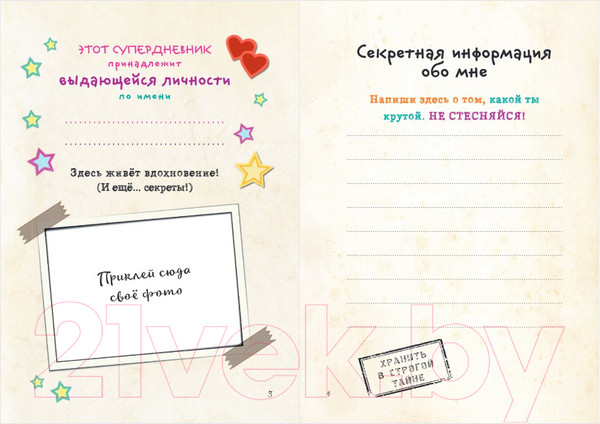 ЭТОТ СУПЕРДНЕВНИК
принадлежит
выдающейся личности
по имени
Здесь живёт вдохновение!
(И ещё... секреты!)
Приклей сюда
своё фото
3
Секретная информация
обо мне
Напиши здесь о том, какой ты
крутой. НЕ СТЕСНЯЙСЯ!
ХРАНИТЬ
В СТРОГОЙ
ТАЙНЕ
4
21vek.by